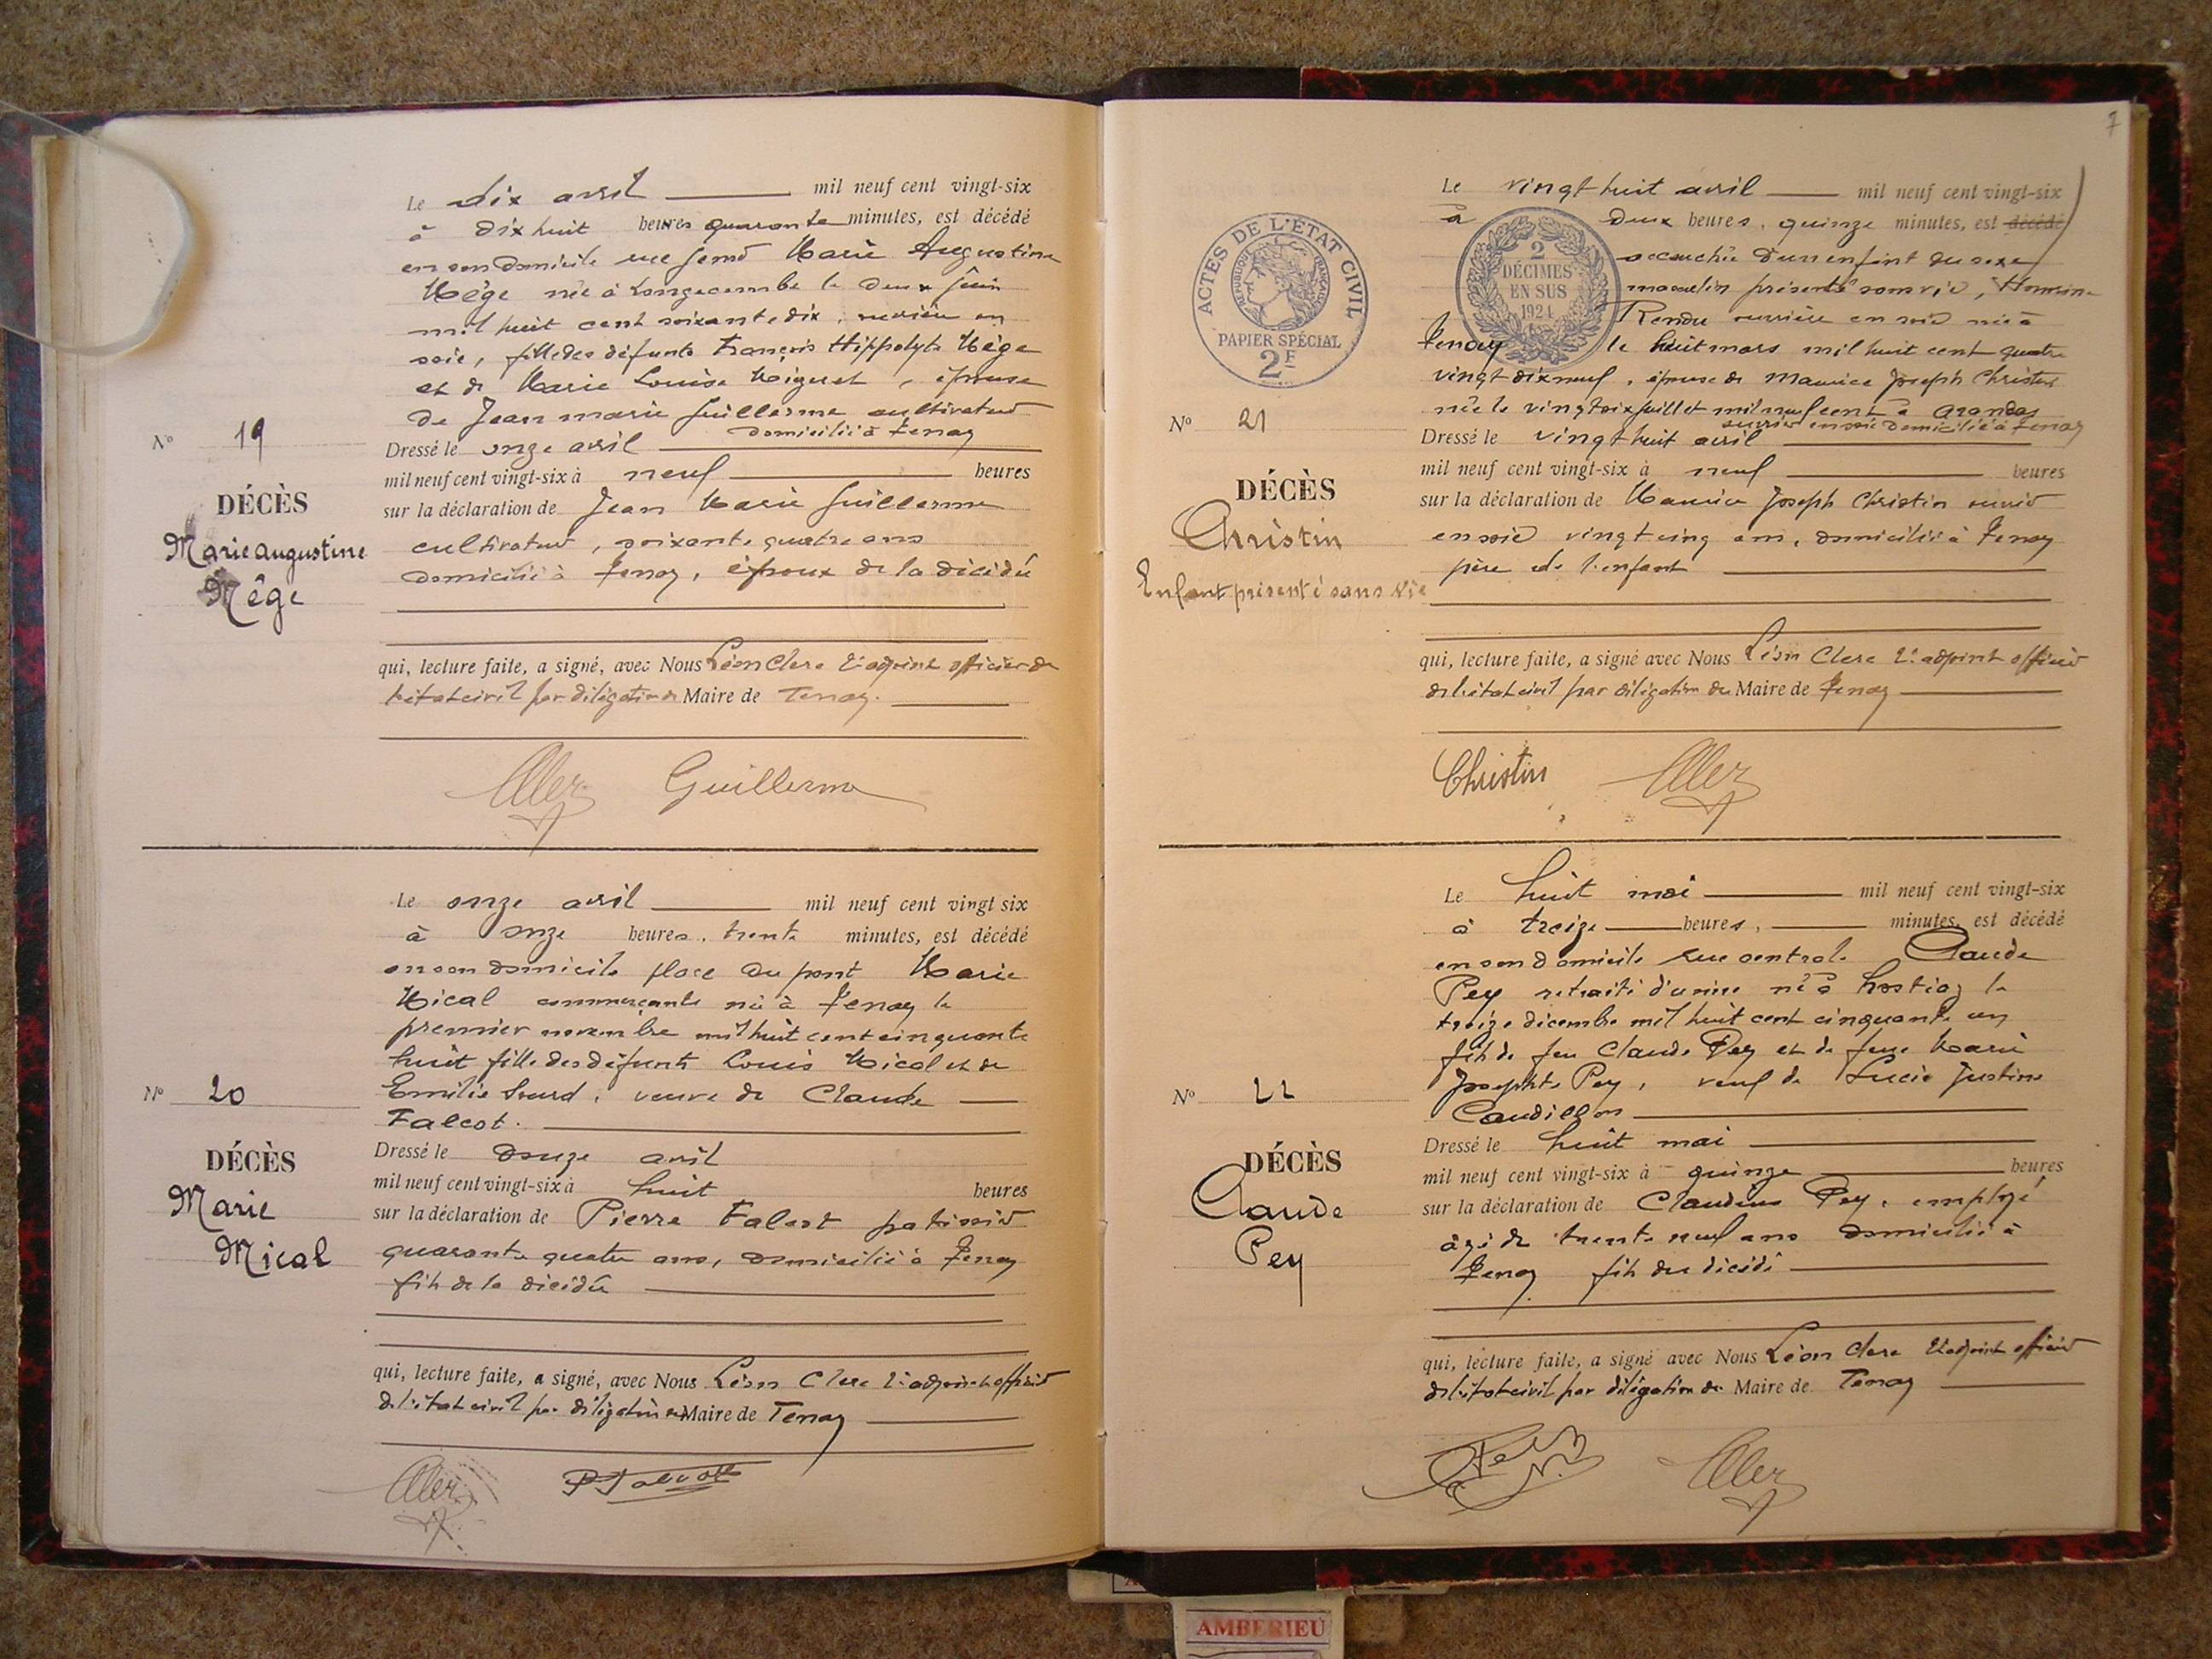 Le dix avril mil neuf cent vingt-six
à dix huit heures quarante minutes, est décédé
en son domicile Marie Augustine
Mège née à Longecombe le deux juin
mil huit cent soixante dix, ouvrière en
soie, fille des défunts François Hippolyte Mège
et de Marie Louise, épouse
de Jean marie Guillerme cultivateur
domicilié à Tenay
N° 19
DÉCÈS
Marie augustine
Mège
Dressé le onze avril
mil neuf cent vingt-six à neuf heures
sur la déclaration de Jean Marie Guillerme
cultivateur, soixante quatre ans
domicilié à Tenay, époux de la décédée
qui, lecture faite, a signé, avec Nous Léon Clerc 2e adjoint officier de
l'état civil par délégation du Maire de Tenay.
Guillerme
Le onze avril mil neuf cent vingt six
à onze heures, trente minutes, est décédé
en son domicile place du pont Marie
Mical commerçante née à Tenay le
premier novembre mil huit cent cinquante
huit fille des défunts Louis Mical et de
Emilie, veuve de Claude
Falcot.
N° 20
DÉCÈS
Marie
Mical
Dressé le douze avril
mil neuf cent vingt-six à huit heures
sur la déclaration de Pierre Falcot patissier
quarante quatre ans, domicilié à Tenay
fils de la décédée
qui, lecture faite, a signé, avec Nous Léon Clerc 2e adjoint officier
de l'état civil par délégation du Maire de Tenay
7
ACTES DE L'ÉTAT CIVIL
RÉPUBLIQUE FRANÇAISE
PAPIER SPÉCIAL
2F
2
DÉCIMES
EN SUS
1924
Le vingt huit avril mil neuf cent vingt-six
à deux heures, quinze minutes, est décédé
accouchée d'un enfant du sexe
masculin présenté sans vie,
Rendu ouvrière en soie née à
Tenay le huit mars mil huit cent quatre
vingt dix neuf, épouse de Maurice Joseph Christin
né le juillet mil neuf cent à Arandas
ouvrier en soie domicilié à Tenay
N° 21
DÉCÈS
Christin
Enfant présenté sans vie
Dressé le vingt huit avril
mil neuf cent vingt-six à neuf heures
sur la déclaration de Maurice Joseph Christin ouvrier
en soie vingt cinq ans, domicilié à Tenay
père de l'enfant
qui, lecture faite, a signé avec Nous Léon Clerc 2e adjoint officier
de l'état civil par délégation du Maire de Tenay
Christin
Le huit mai mil neuf cent vingt-six
à treize heures, minutes, est décédé
en son domicile rue centrale Claude
Pey retraité d'usine né à Hostiaz le
treize décembre mil huit cent cinquante un
fils de feu Claude Pey et de feue Marie
Josephte Pey, veuf de Lucie Justine
Caudillon
N° 22
DÉCÈS
Claude
Pey
Dressé le huit mai
mil neuf cent vingt-six à quinze heures
sur la déclaration de Claudius Pey, employé
âgé de trente neuf ans domicilié à
Tenay fils du décédé
qui, lecture faite, a signé avec Nous Léon Clerc 2e adjoint officier
de l'état civil par délégation du Maire de Tenay
AMBERIEU